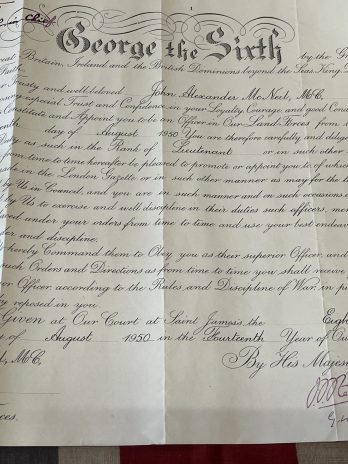 in Chief
George the Sixth by the Gr
Britain, Ireland and the British Dominions beyond the Seas King,
Faith
Trusty and well beloved John Alexander McNeil, MC.
especial Trust and Confidence in your Loyalty, Courage, and good Cond
Constitute and Appoint you to be an Officer in Our Land Forces from
day of August 1950. You are therefore carefully and dilige
Duty as such in the Rank of Lieutenant or in such other
from time to time hereafter be pleased to promote or appoint you to, of which
made in the London Gazette, or in such other manner as may for the t
by Us in Council, and you are in such manner and on such occasions
by Us to exercise and well discipline in their duties such officers, men
placed under your orders from time to time and use your best endeav
order and discipline.
hereby Command them to Obey you as their superior Officer, and
such Orders and Directions as from time to time you shall receive
Officer, according to the Rules and Discipline of War, in p
reposed in you.
Given at Our Court, at Saint James's the Eigh
of August 1950 in the Fourteenth Year of Ou
By His Majes
MC.